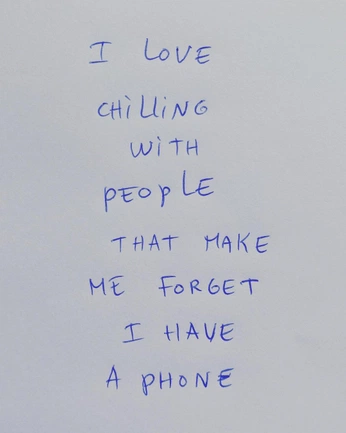 I LOVE
CHiLLiNG
WiTH
PEOPLE
THAT MAKE
ME FORGET
I HAVE
A PHONE